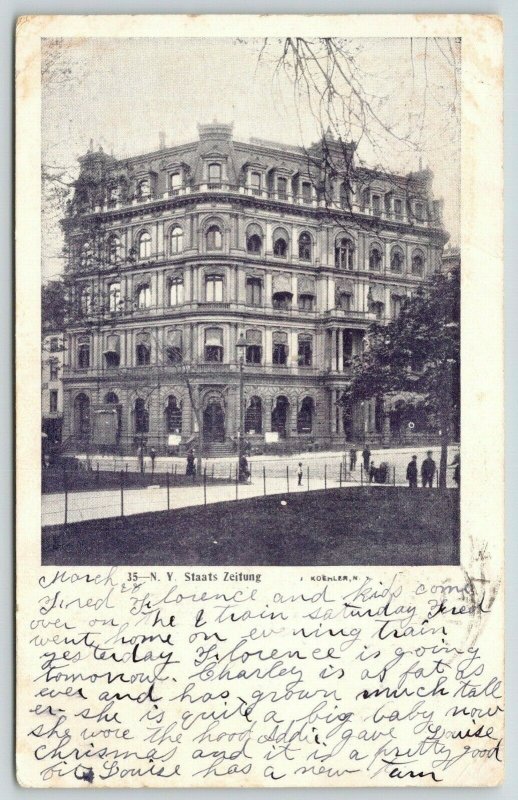 35—N. Y. Staats Zeitung
J KOEHLER, N.
March
Fred Florence and kids come
over on the 1 train saturday Fred
went home on evening train
yesterday Florence is going
tomorrow. Charley is as fat as
ever and has grown much tall
er. she is quite a big baby now
she wore the hood Addie gave Louise
chrismas and it is a pretty good
bit Louise has a new Tam